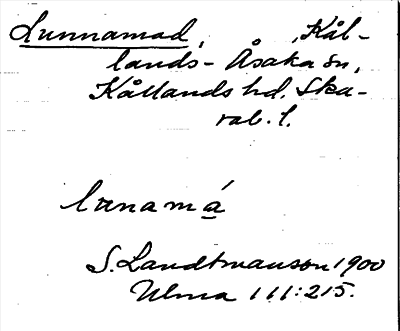 Lunnamad, Kål-
lands-Åsaka sn,
Kållands hd. Ska-
rab. l.
lunamá
S. Landtmanson 1900
Ulma 111:215.